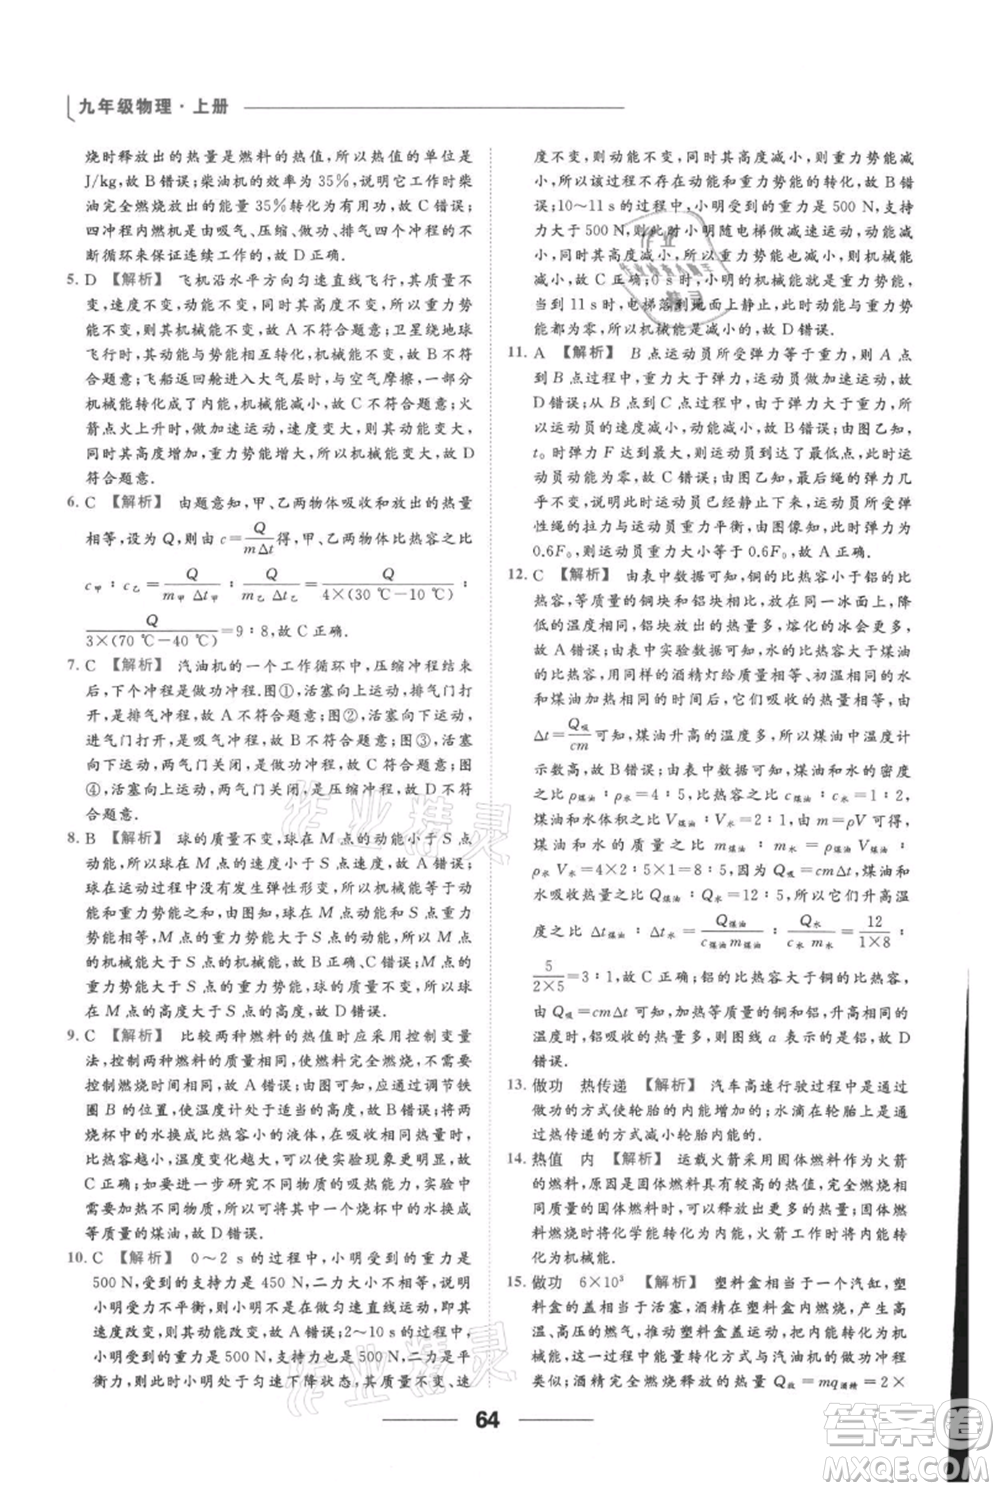 九年级物理·上册
烧时释放出的热量是燃料的热值,所以热值的单位是
J/kg,故 B 错误;柴油机的效率为 35%,说明它工作时柴
油完全燃烧放出的能量 35%转化为有用功,故 C 错误;
四冲程内燃机是由吸气、压缩、做功、排气四个冲程的不
断循环来保证连续工作的,故 D 正确.
5. D 【解析】 飞机沿水平方向匀速直线飞行,其质量不
变,速度不变,动能不变,同时其高度不变,重力势能不
变,其机械能不变,故 A 不符合题意;卫星绕地球
飞行时,其动能与势能相互转化,机械能不变,故 B 不
符合题意;飞船返回舱进入大气层后,与空气摩擦,一部分
机械能转化成了内能,机械能减小,故 C 不符合题意;火
箭点火上升时,做加速运动,速度变大,动能变大,同时
其高度变大,重力势能变大,其机械能变大,故 D
符合题意.
6. C 【解析】 由题意知,甲、乙两物体吸收和放出的热量
相等,设为 Q,则由 c=Q/mΔt 得,甲、乙两物体比热容之比
c甲∶c乙=Q/m甲Δt甲∶Q/m乙Δt乙=Q/4×(30 ℃-10 ℃)∶
Q/3×(70 ℃-40 ℃)=9∶8,故 C 正确.
7. C 【解析】 汽油机的一个工作循环中,压缩冲程结束
后,下个冲程是做功冲程.图①,活塞向上运动,排气门打
开,是排气冲程,故 A 不符合题意;图②,活塞向下运动,
进气门打开,是吸气冲程,故 B 不符合题意;图③,气门都
关闭,活塞下行,是做功冲程,故 C 符合题意;图
④,气门都关闭,活塞向上运动,是压缩冲程,故 D 不符
合题意.
8. B 【解析】 球的质量不变,球在 M 点的动能小于 S 点
动能,所以球在 M 点的速度小于 S 点速度,故 A 错误;
球在运动过程中,受到空气阻力,机械能不断减小,故
B 正确;由图知,球在 M 点的动能小于 S 点动能,重力
势能等于 S 点的重力势能,所以球在 M 点的机械能
小于 S 点的机械能,故 C 错误;由图知,球在 M 点的重
力势能大于 S 点的重力势能,球的质量不变,所以球
在 M 点的高度大于 S 点的高度,故 D 错误.
9. C 【解析】 比较两种燃料的热值时应采用控制变量
法,控制两种燃料的质量相同,使燃料完全燃烧,不需要
控制燃烧时间相同,故 A 错误;实验时,应通过调节铁
圈 B 的位置,使温度计处于适当的高度,故 B 错误;将两
烧杯中的水换成比热容小的液体,吸收相同热量时,
温度变化更大,温度变化越大,实验现象越明显,故
C 正确;如要进一步研究不同物质的吸热能力,需要用
相同燃料加热不同物质,只将其中一个烧杯中的水换成质
量等于水的另一种物质,故 D 错误.
10. C 【解析】 0~2 s 的过程中,小明受到的重力是
500 N,受到的支持力是 450 N,二力大小不相等,说明
小明受力不平衡,则小明不是做匀速直线运动,即其
速度改变,则动能改变,故 A 错误;2~10 s 的过程中,
小明受到的重力是 500 N,支持力也是 500 N,二力平
衡,此时小明处于匀速下降状态,其质量不变、速
度不变,则动能不变,同时其高度减小,重力势能减
小,所以该过程不存在动能和重力势能的转化,故 B 错
误;10~11 s 的过程中,小明受到的重力是 500 N,支持
力大于 500 N,此时小明随电梯做减速运动,
其质量不变、速度减小,高度减小,小明的机械能是减小
的,故 C 正确;0 s 时,小明处于上面某层,具有机械
能,到 11 s 时,电梯落到地面上静止,动能和重力势能
都为零,所以机械能是减小的,故 D 错误.
11. A 【解析】 B 点运动员所受弹力等于重力,而从 A 点
到 B 点过程中,弹力小于重力,运动员做加速运动,故
D 错误;从 B 点到 C 点的过程中,由于弹力大于重力,
所以运动员的速度减小,动能减小,故 B 错误;由图知,
t₀ 时弹力 F 达到最大,所以运动员到达最低点,速度为
零,动能为零,故 C 错误;由图乙知,最后绳的弹力几
乎不变,说明此时运动员已经静止下来,运动员所受弹
性绳的拉力与运动员重力平衡,由图像知,此时拉力为
0.6F₀,所以运动员重力大小为 0.6F₀,故 A 正确.
12. C 【解析】 由表中数据可知,铜的比热容小于铝的比
热容,等质量的铜块和铝块放在同一冰面上,降低相
同的温度时,铝块放出的热量多,熔化的冰会更多,故
A 错误;由表中数据可知,水的比热容大于煤油的比热
容,用同样的酒精灯给水和煤油加热,由于水
和煤油加热相同的时间,它们吸收的热量相等,根据
Δt=Q吸/cm 可知,煤油升高的温度多,所以煤油中温度计
示数高,故 B 错误;由表中数据可知,煤油和水的密度
之比 ρ煤油∶ρ水=4∶5,比热容之比 c煤油∶c水=1∶2,
煤油和水体积之比 V煤油∶V水=2∶1,由 m=ρV 可知,
煤油和水的质量之比 m煤油∶m水=ρ煤油V煤油∶
ρ水V水=4×2∶5×1=8∶5,且煤油和
水吸收热量之比 Q煤油∶Q水=12∶5,所以它们升高温
度之比 Δt煤油∶Δt水=Q煤油/c煤油m煤油∶Q水/c水m水=12/1×8∶
5/2×5=3∶1,故 C 正确;铝的比热容大于铜的比热容,
由 Q吸=cmΔt 可知,加热等质量的铜和铝,升高相同的
温度时,铝吸收的热量多,则图线 a 表示铝,故 D
错误.
13. 做功 热传递 【解析】 汽车高速行驶过程中,通过
做功的方式使轮胎的内能增加的;水滴在轮胎上,通过
热传递的方式减小轮胎内能的.
14. 热值 内 【解析】 运载火箭采用固体燃料作为火箭
的燃料,是因为固体燃料具有较高的热值,质量相同时,
完全燃烧可以放出更多的热量.火箭发射时,
燃料燃烧时将化学能转化为内能,火箭工作时将内能转
化为机械能.
15. 做功 6×10³ 【解析】 塑料盒相当于一个汽缸,塑
料盒的盖相当于活塞,酒精在塑料盒内燃烧,产生高
温、高压的燃气,推动塑料盒盖运动,把内能转化为机
械能,这一过程中能量转化方式与汽油机的做功冲程
类似;酒精完全燃烧放出的热量 Q放=mq酒精=2×
64
作业精灵
答案圈
MXQE.COM